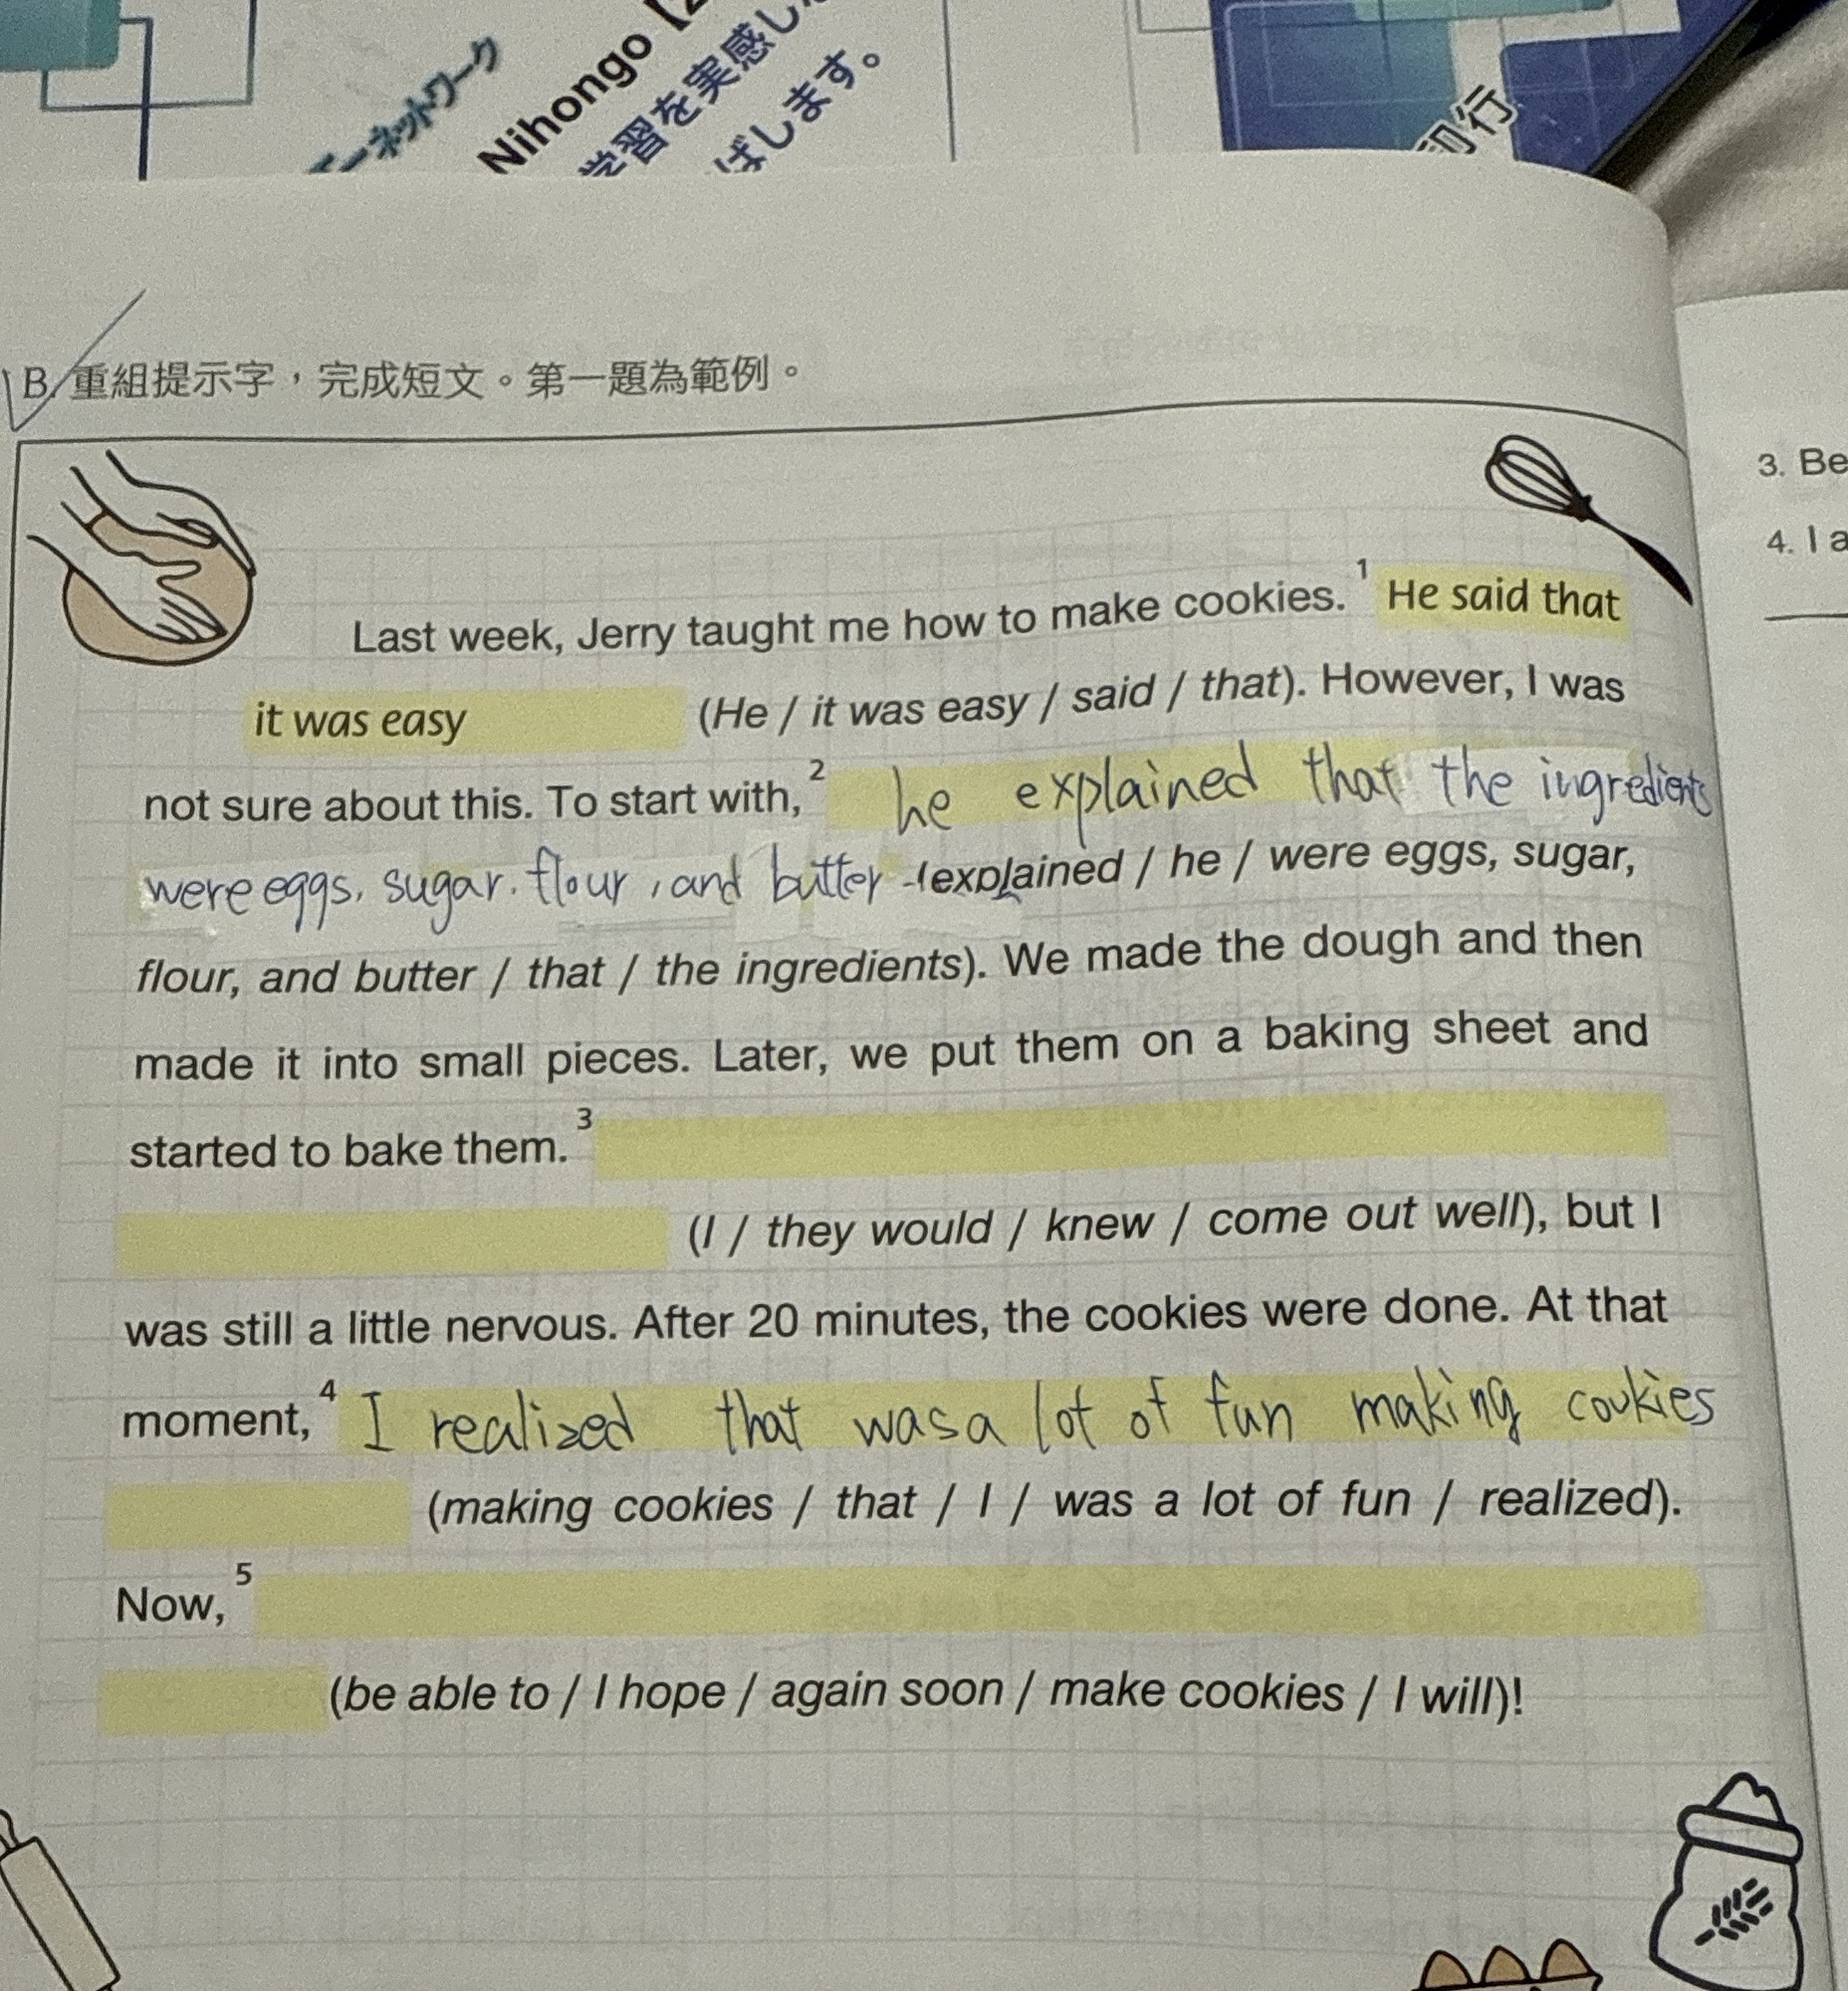 ーネットワーク
Nihongo
学習を実感し
ばします。
行
B. 重組提示字，完成短文。第一題為範例。
3. Be
4. I a
Last week, Jerry taught me how to make cookies. 1 He said that
it was easy (He / it was easy / said / that). However, I was
not sure about this. To start with, 2 he explained that the ingredients
were eggs, sugar, flour, and butter (explained / he / were eggs, sugar,
flour, and butter / that / the ingredients). We made the dough and then
made it into small pieces. Later, we put them on a baking sheet and
started to bake them. 3
(I / they would / knew / come out well), but I
was still a little nervous. After 20 minutes, the cookies were done. At that
moment, 4 I realized that was a lot of fun making cookies
(making cookies / that / I / was a lot of fun / realized).
Now, 5
(be able to / I hope / again soon / make cookies / I will)!